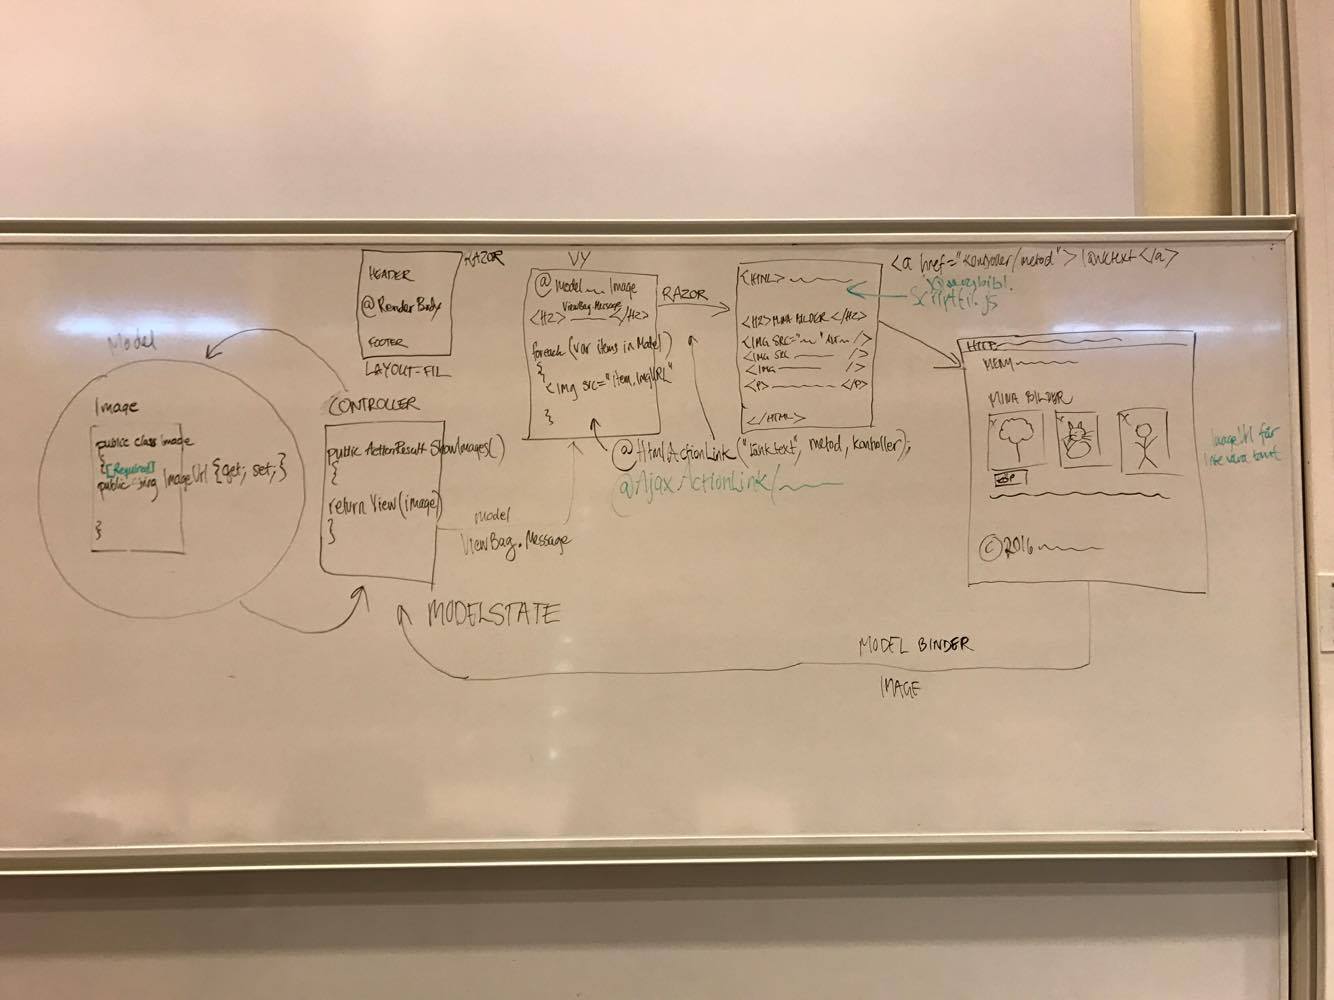 Model
Image
public class Image
{
[Required]
public sring ImageUrl {get; set;}
}
RAZOR
HEADER
@RenderBody
FOOTER
LAYOUT-FIL
CONTROLLER
public ActionResult ShowImages()
{
return View(image)
}
Model
ViewBag.Message
MODELSTATE
VY
@model Image
ViewBag.Message
<H2> </H2>
foreach(var items in Model)
{
<img src="item.ImgURL"
}
RAZOR
@HtmlActionLink("länktext", metod, kontroller);
@Ajax.ActionLink/
<HTML>
<H2>MINA BILDER </H2>
<IMG SRC=" " />
<IMG SRC />
<IMG />
<P> </P>
</HTML>
<a href="kontroller/metod"> länktext </a>
Scriptfil.js
HTTP:
MENY
MINA BILDER
X
X
X
KÖP
© 2016
ImageUrl får
inte vara tomt
MODEL BINDER
IMAGE